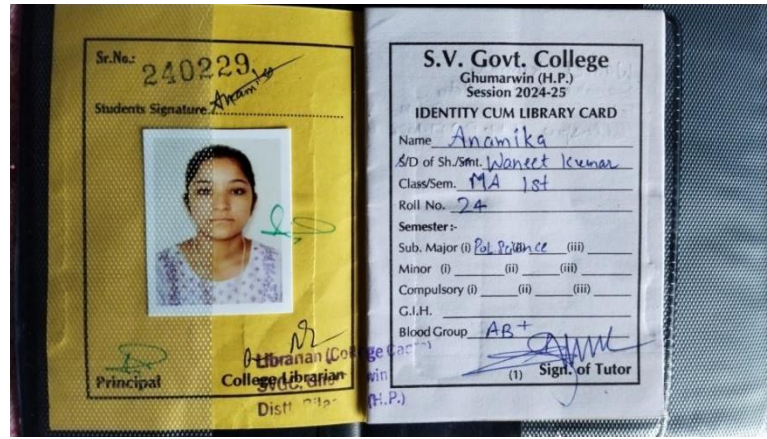 Sr.No.: 240229
Students Signature Anamika
Principal
College Librarian
Librarian (College Cadre)
Distt. Bilas (H.P.)
S.V. Govt. College
Ghumarwin (H.P.)
Session 2024-25
IDENTITY CUM LIBRARY CARD
Name Anamika
S/D of Sh./Smt. Waneet Kumar
Class/Sem. MA 1st
Roll No. 24
Semester:-
Sub. Major (i) Pol. Science (iii)
Minor (i) (ii) (iii)
Compulsory (i) (ii) (iii)
G.I.H.
Blood Group AB+
(1) Sign. of Tutor